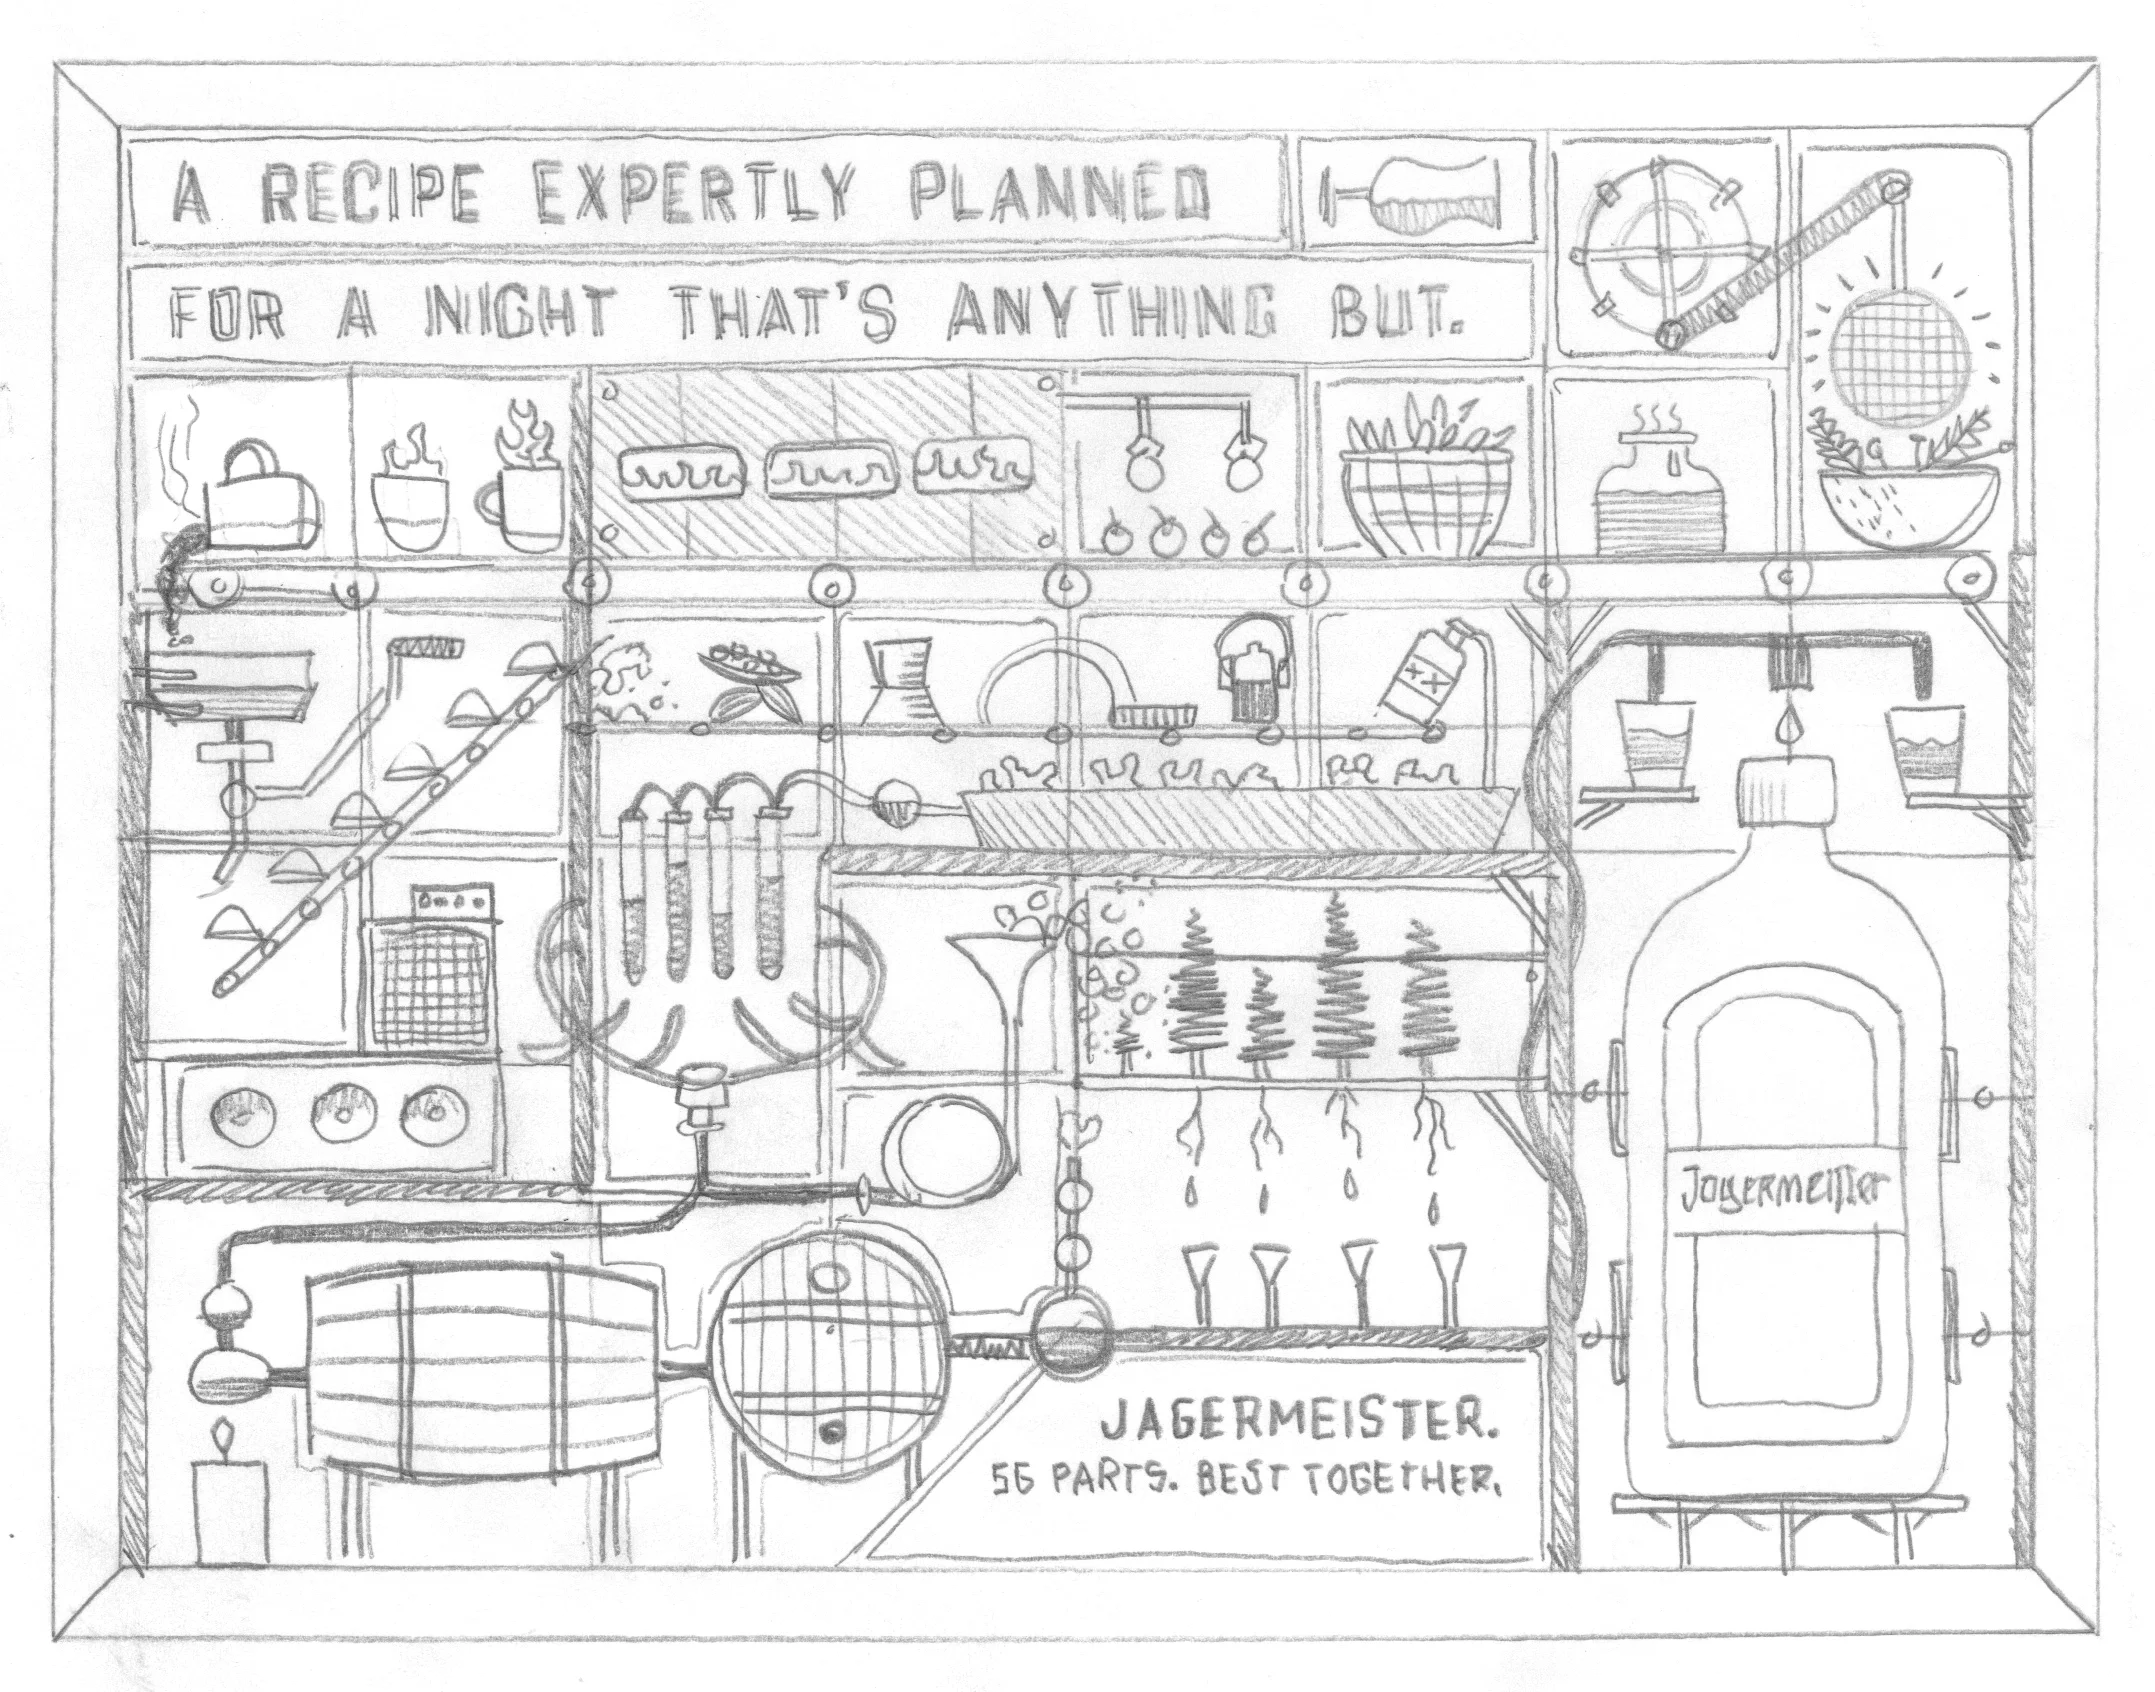 A RECIPE EXPERTLY PLANNED
FOR A NIGHT THAT'S ANYTHING BUT.
XX
Jagermeister
JAGERMEISTER.
56 PARTS. BEST TOGETHER.